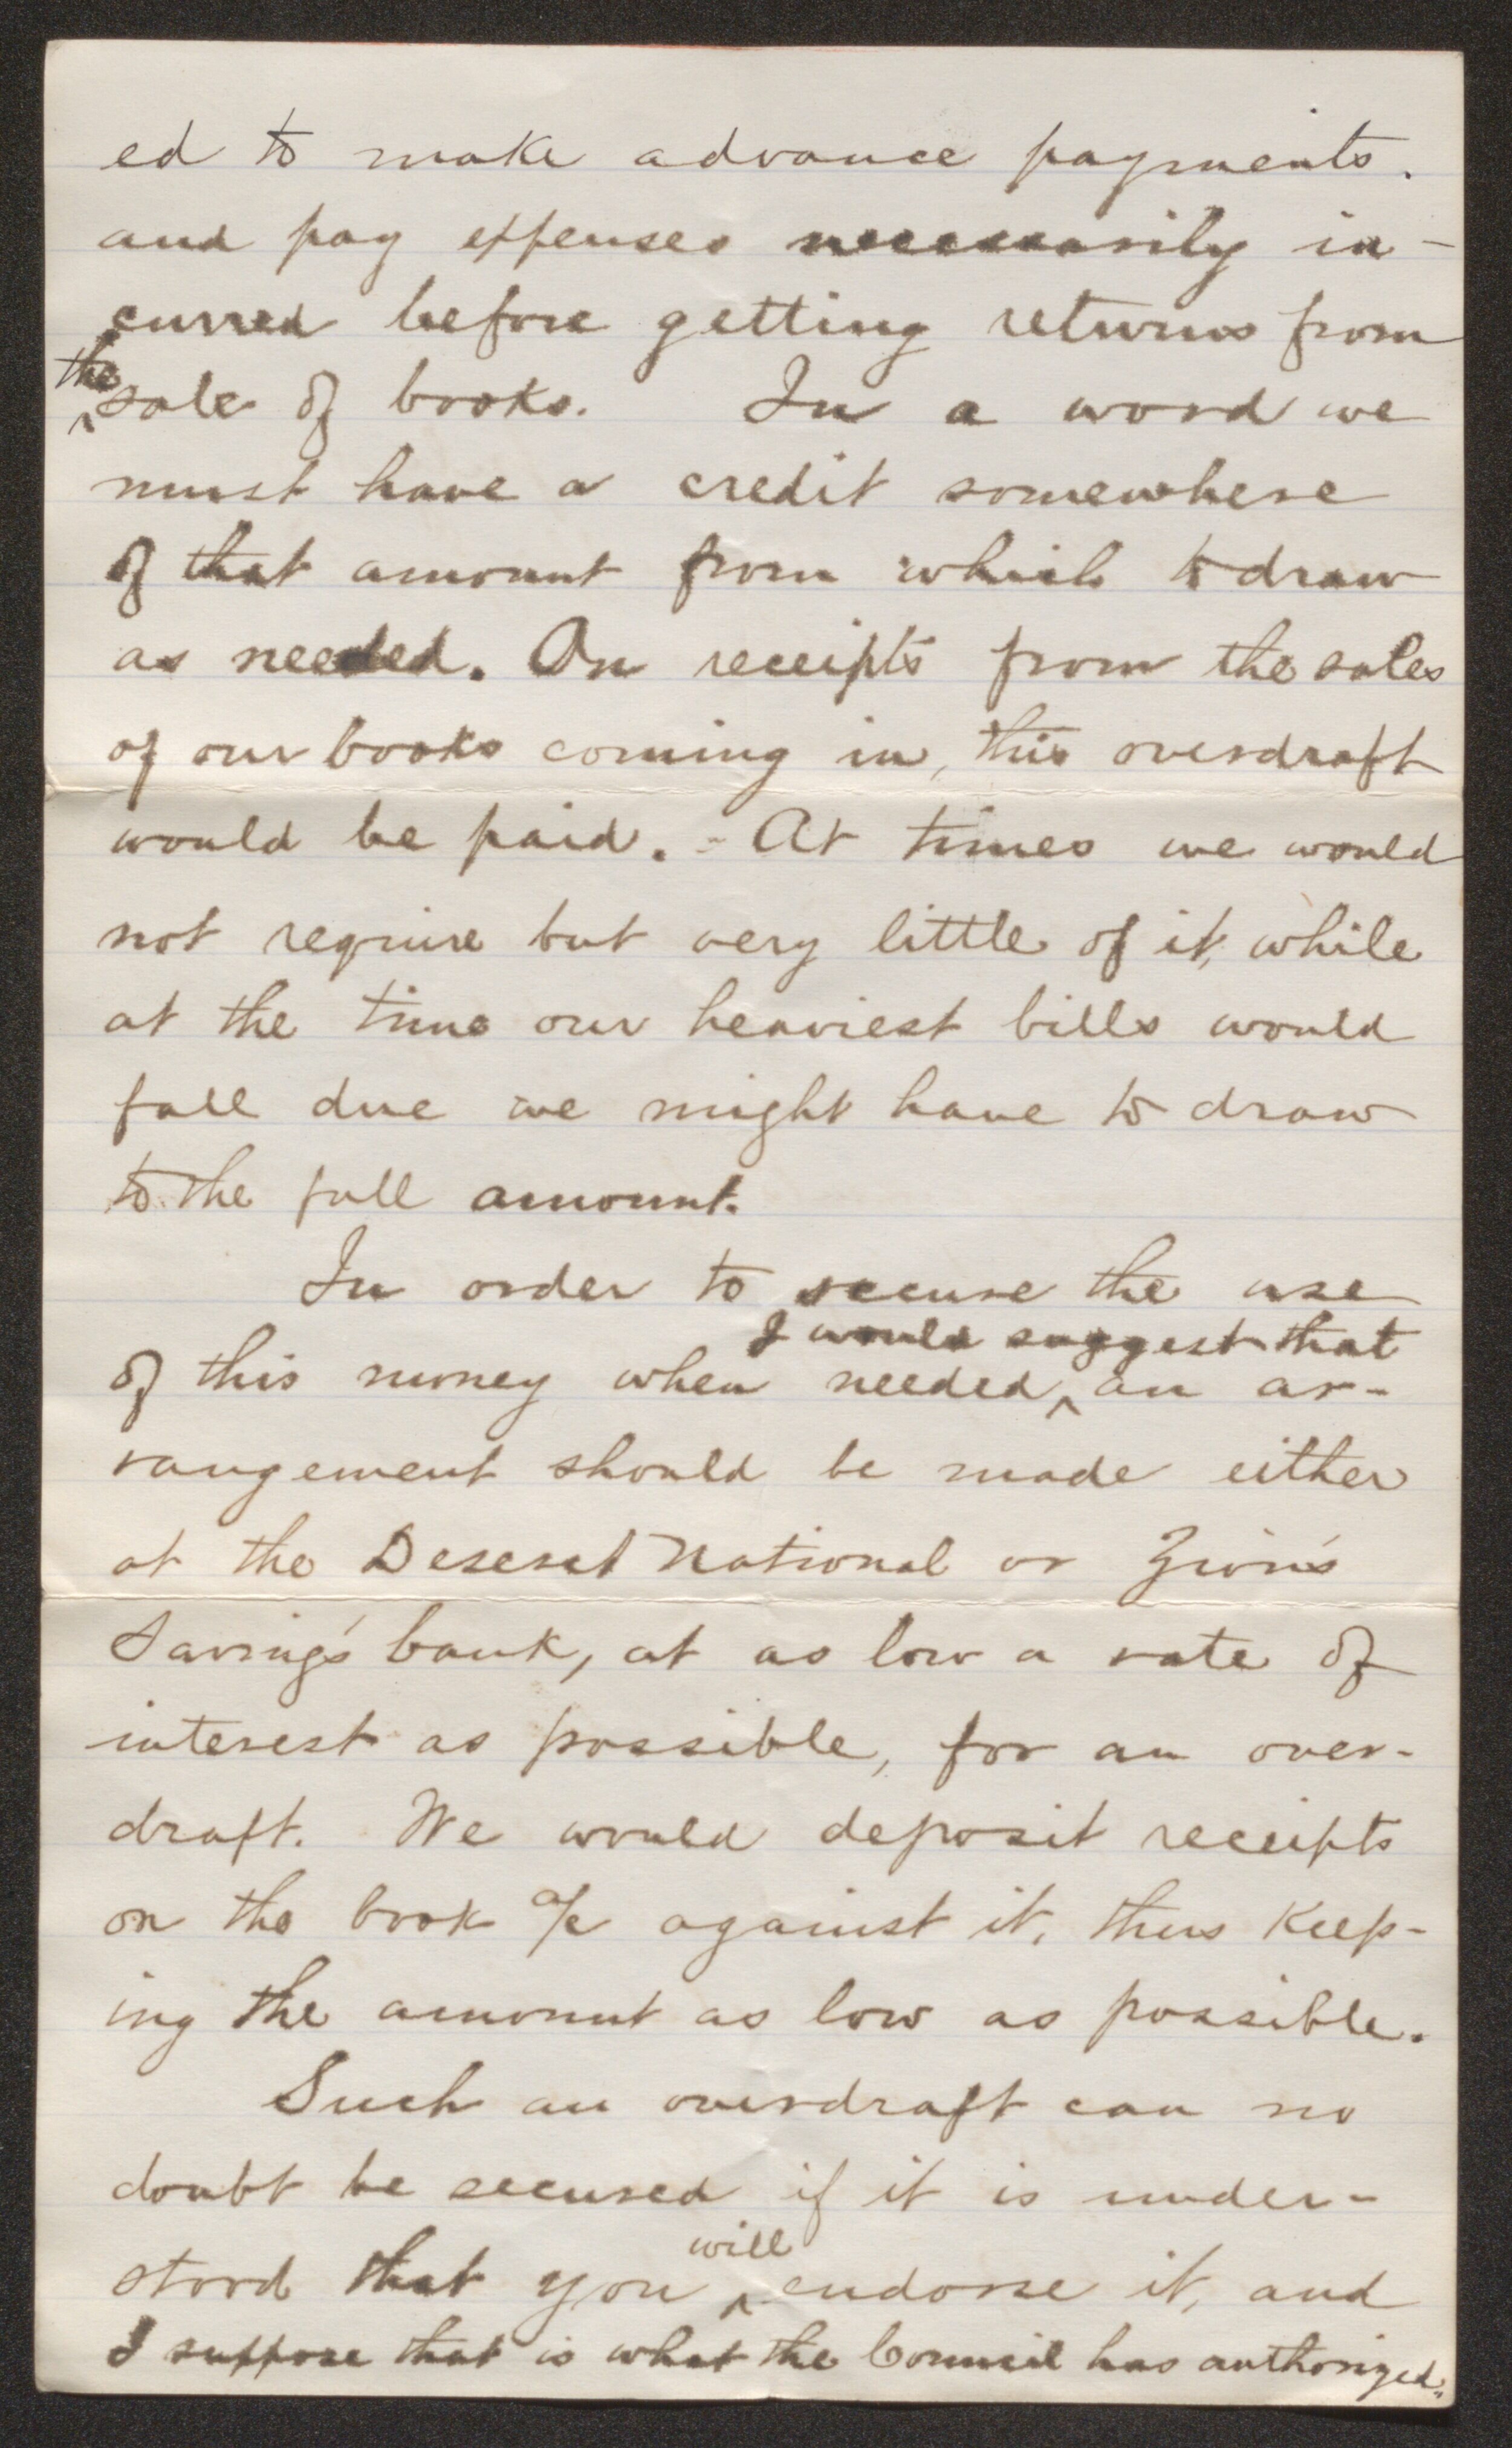 ed to make advance payments.
and pay expenses necessarily in-
curred before getting returns from
the
sale of books. In a word we
must have a credit somewhere
of that amount from which to draw
as needed. On receipts from the sales
of our books coming in, this overdraft
would be paid. - At times we would
not require but very little of it, while
at the time our heaviest bills would
fall due we might have to draw
to the full amount.
In order to secure the use
I would suggest that
of this money when needed, ^ an ar-
rangement should be made either
at the Deseret National or Zion's
Saving's bank, at as low a rate of
interest as possible, for an over-
draft. We would deposit receipts
on the book a/c against it, thus keep-
ing the amount as low as possible.
Such an overdraft can no
doubt be secured if it is under-
will
stood that you ^ endorse it, and
I suppose that is what the Council has authorized.